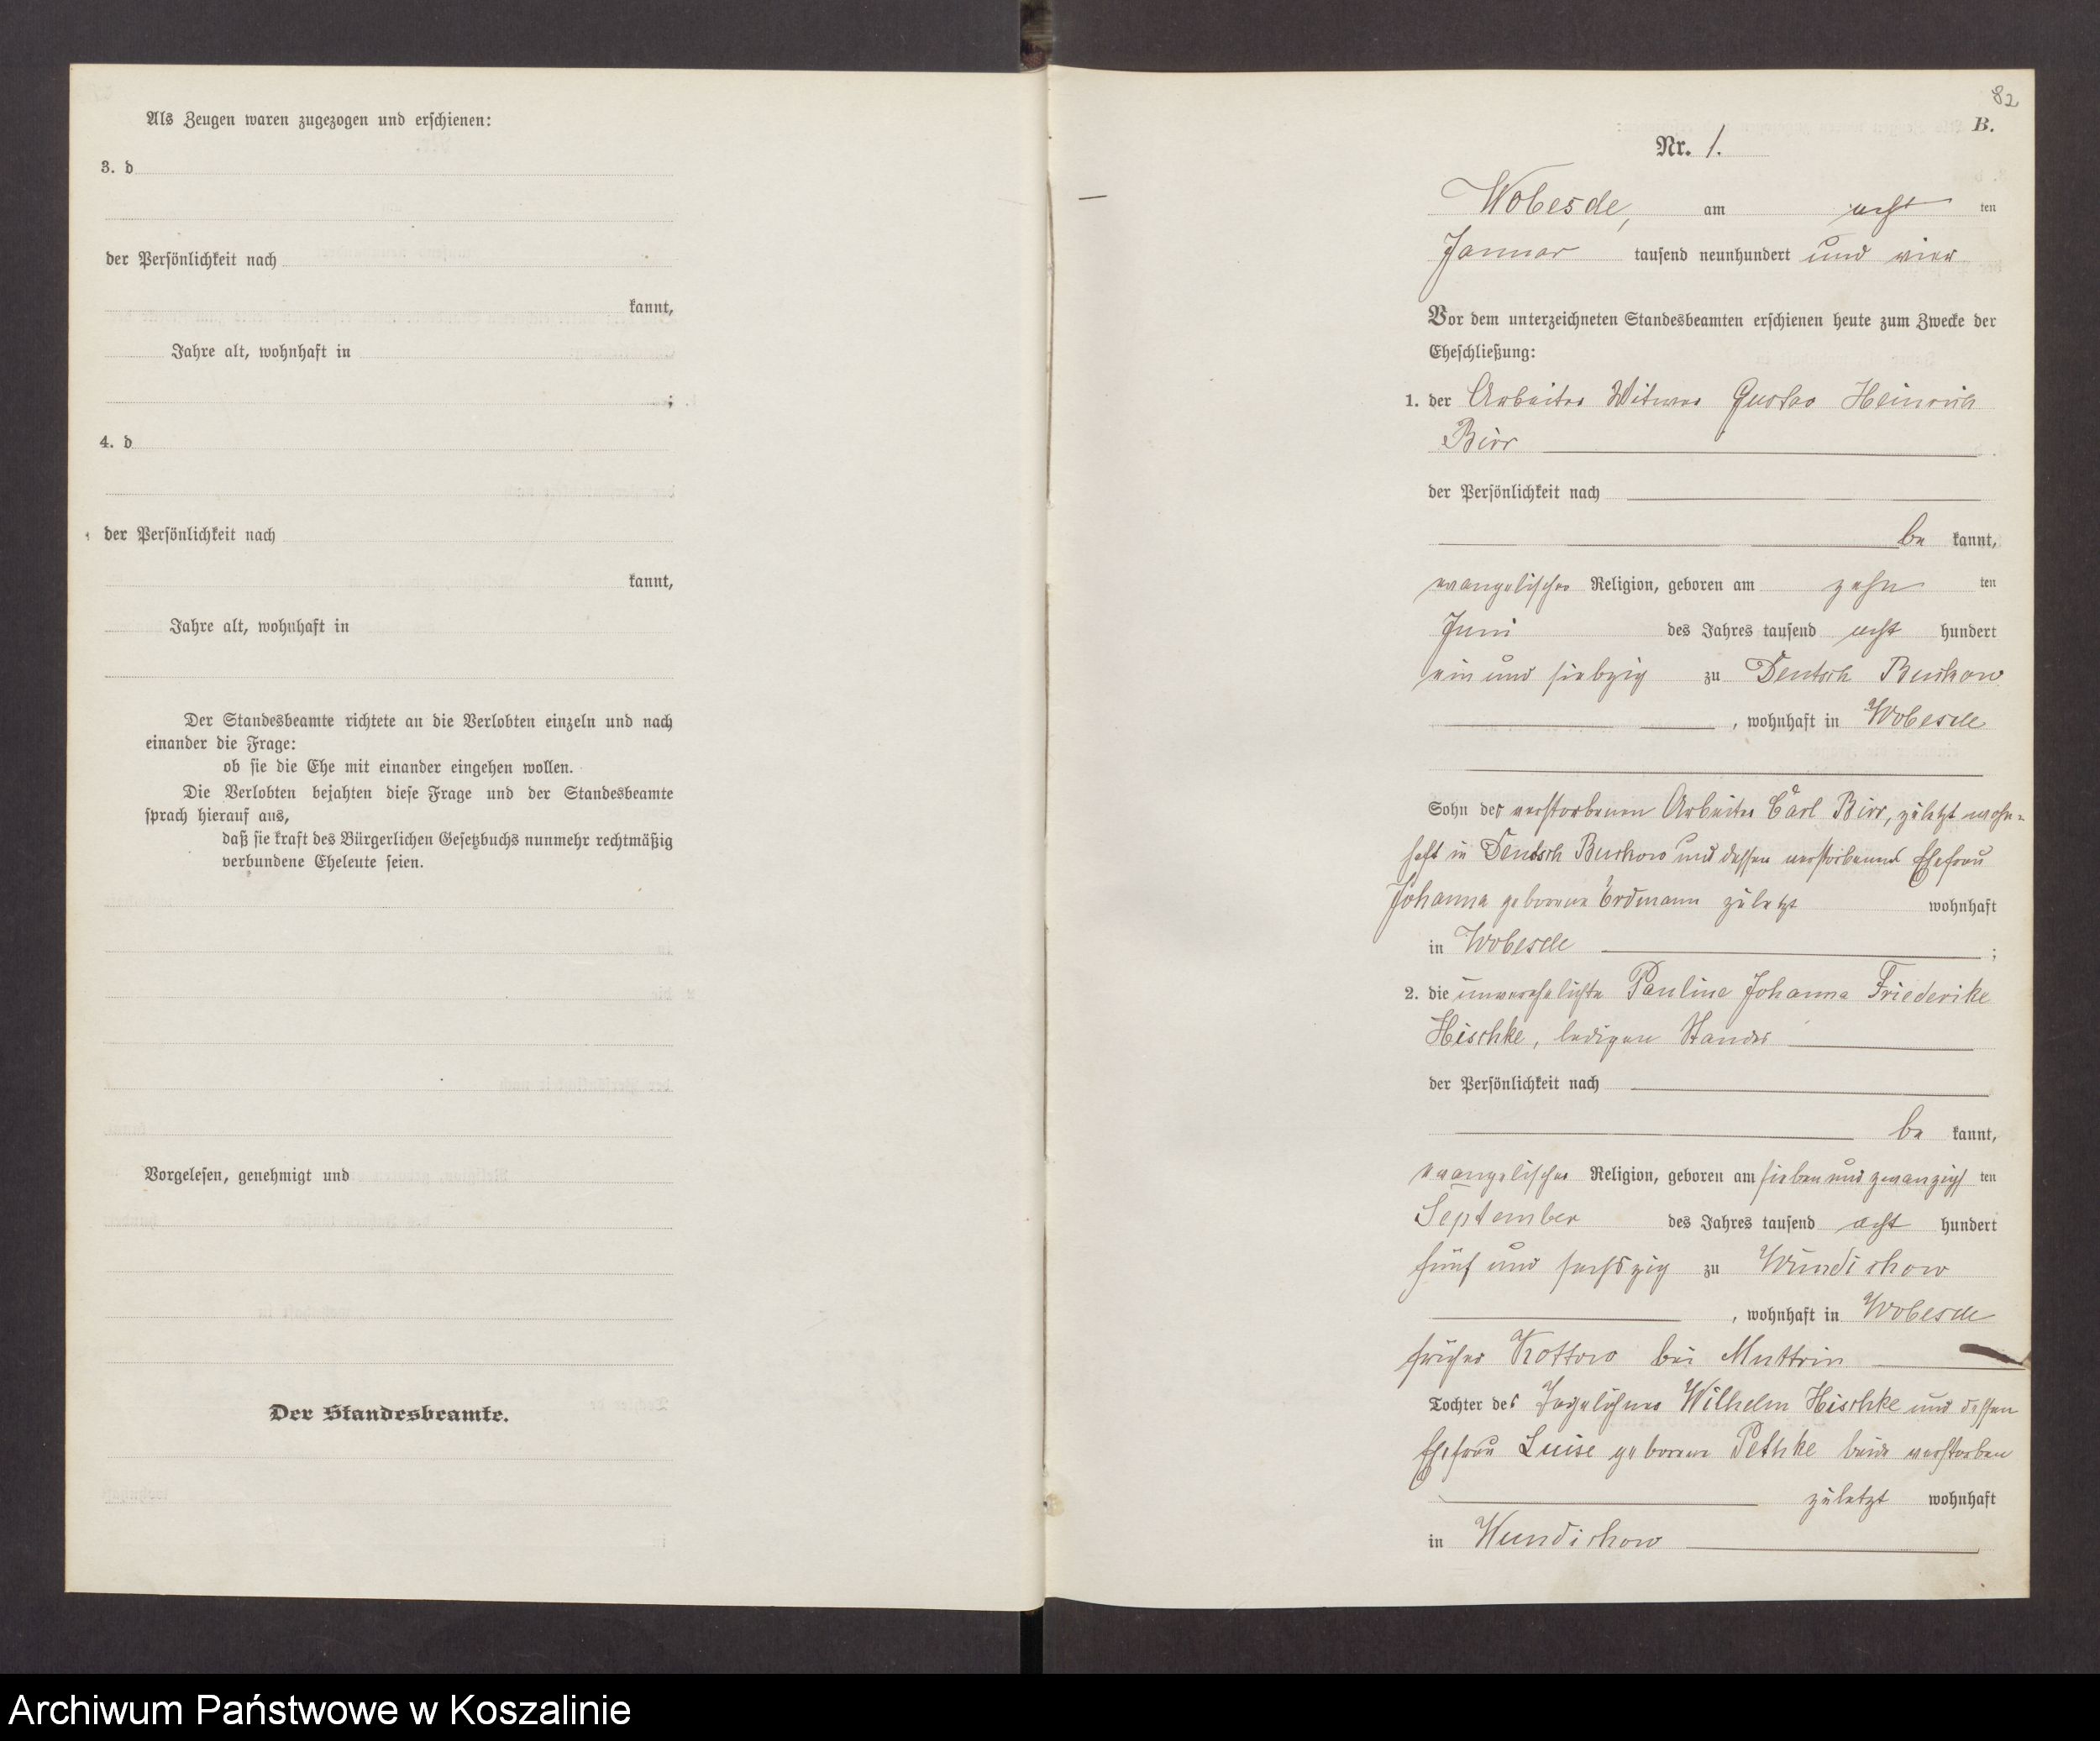 Als Zeugen waren zugezogen und erschienen:
3. d
der Persönlichkeit nach
kannt,
Jahre alt, wohnhaft in
;
4. d
der Persönlichkeit nach
kannt,
Jahre alt, wohnhaft in
Der Standesbeamte richtete an die Verlobten einzeln und nach
einander die Frage:
ob sie die Ehe mit einander eingehen wollen.
Die Verlobten bejahten diese Frage und der Standesbeamte
sprach hierauf aus,
daß sie kraft des Bürgerlichen Gesetzbuchs nunmehr rechtmäßig
verbundene Eheleute seien.
Vorgelesen, genehmigt und
Der Standesbeamte.
82
B.
Nr. 1.
Wobesde, am acht ten
Januar tausend neunhundert und vier
Vor dem unterzeichneten Standesbeamten erschienen heute zum Zwecke der
Eheschließung:
1. der Arbeiter Witwer Gustav Heinrich
Birr
der Persönlichkeit nach
be kannt,
evangelischer Religion, geboren am zehn ten
Juni des Jahres tausend acht hundert
ein und siebzig zu Deutsch Buckow
, wohnhaft in Wobesde
Sohn des verstorbenen Arbeiter Carl Birr, zuletzt wohn-
haft in Deutsch Buckow und dessen verstorbenen Ehefrau
Johanna geborene Erdmann zuletzt wohnhaft
in Wobesde ;
2. die unverehelichte Pauline Johanna Friederike
Hischke, ledigen Standes
der Persönlichkeit nach
be kannt,
evangelischer Religion, geboren am sieben und zwanzigs ten
September des Jahres tausend acht hundert
fünf und sechszig zu Wundichow
, wohnhaft in Wobesde
früher Kottow bei Muttrin
Tochter des Tagelöhner Wilhelm Hischke und dessen
Ehefrau Luise geborene Pethke beide verstorben
zuletzt wohnhaft
in Wundichow
Archiwum Państwowe w Koszalinie